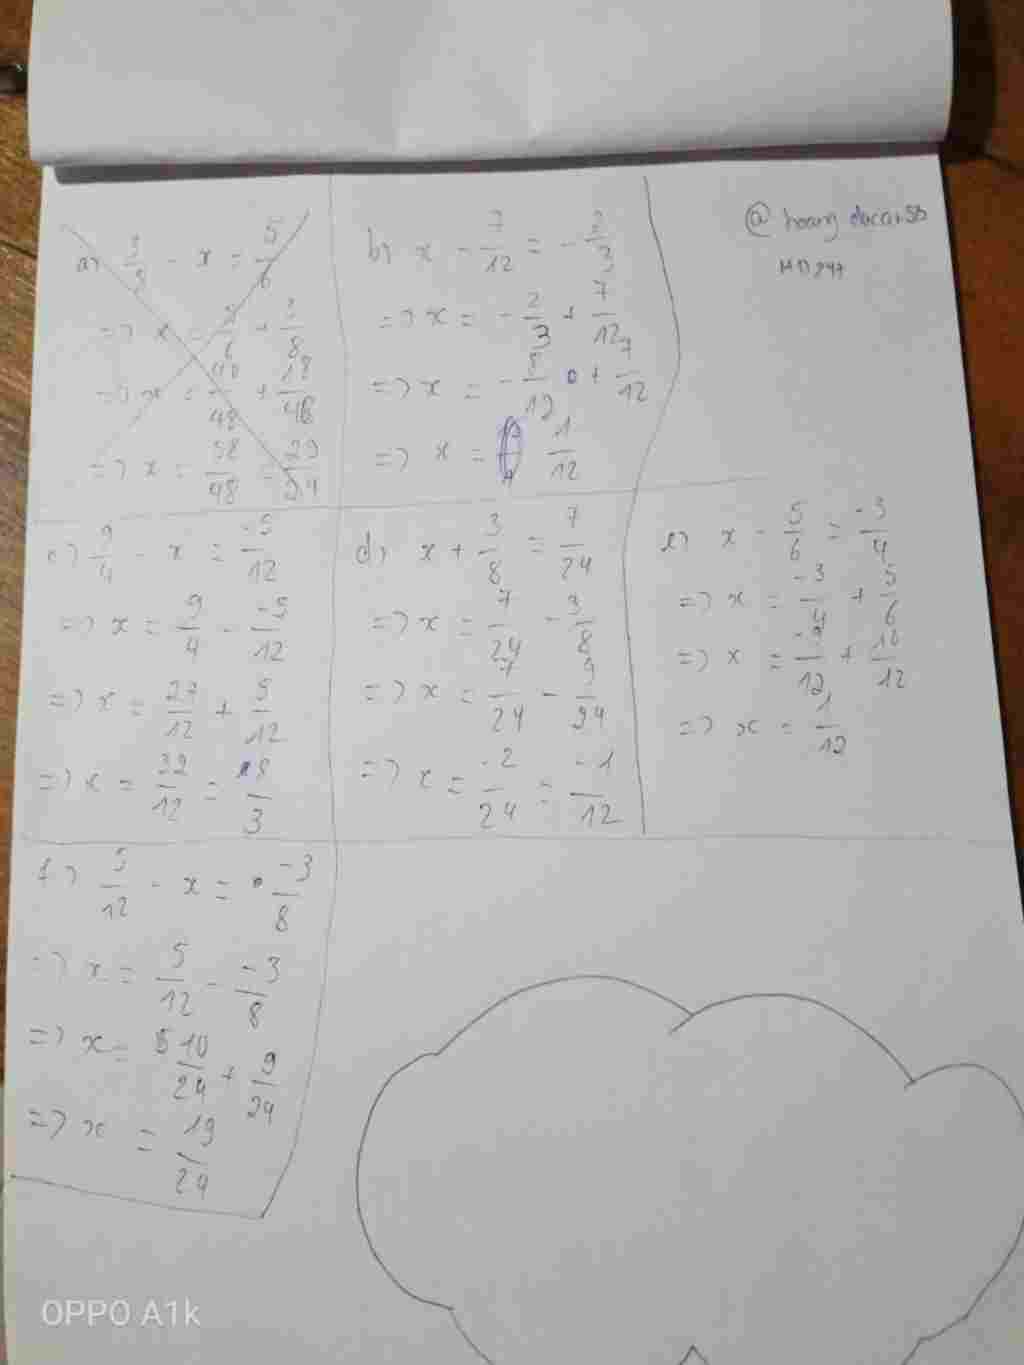 a) 3/8 - x = 5/6
=> x = 5/6 + 3/8
=> x = 40/48 + 18/48
=> x = 58/48 = 29/24
b) x - 7/12 = - 2/3
=> x = - 2/3 + 7/12
=> x = - 8/12 + 7/12
=> x = 1/12
@ hoang
HD247
c) 9/4 - x = -5/12
=> x = 9/4 - -5/12
=> x = 27/12 + 5/12
=> x = 32/12 = 8/3
d) x + 3/8 = 7/24
=> x = 7/24 - 3/8
=> x = 7/24 - 9/24
=> x = -2/24 = -1/12
e) x - 5/6 = -3/4
=> x = -3/4 + 5/6
=> x = -9/12 + 10/12
=> x = 1/12
f) 5/12 - x = -3/8
=> x = 5/12 - -3/8
=> x = 10/24 + 9/24
=> x = 19/24
OPPO A1k